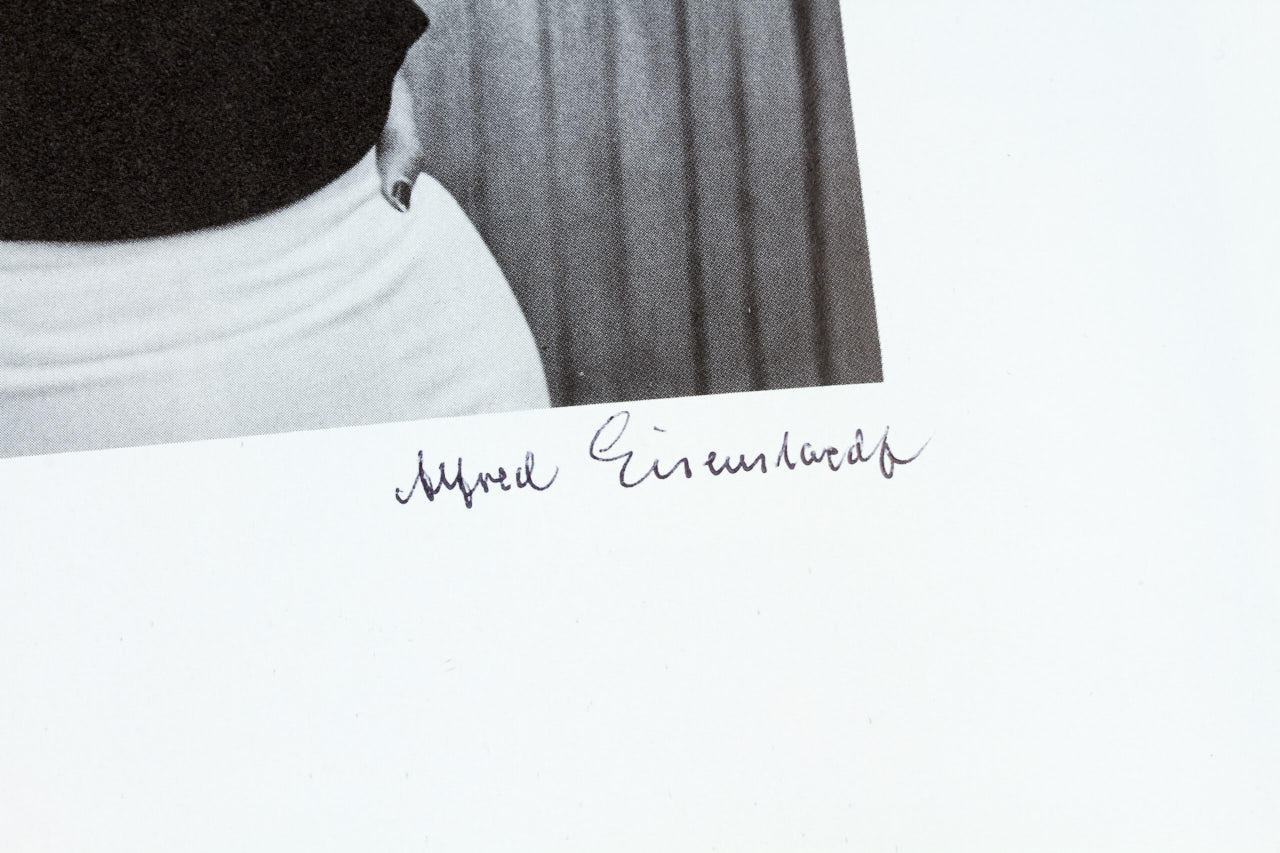 Alfred Eisenstaedt